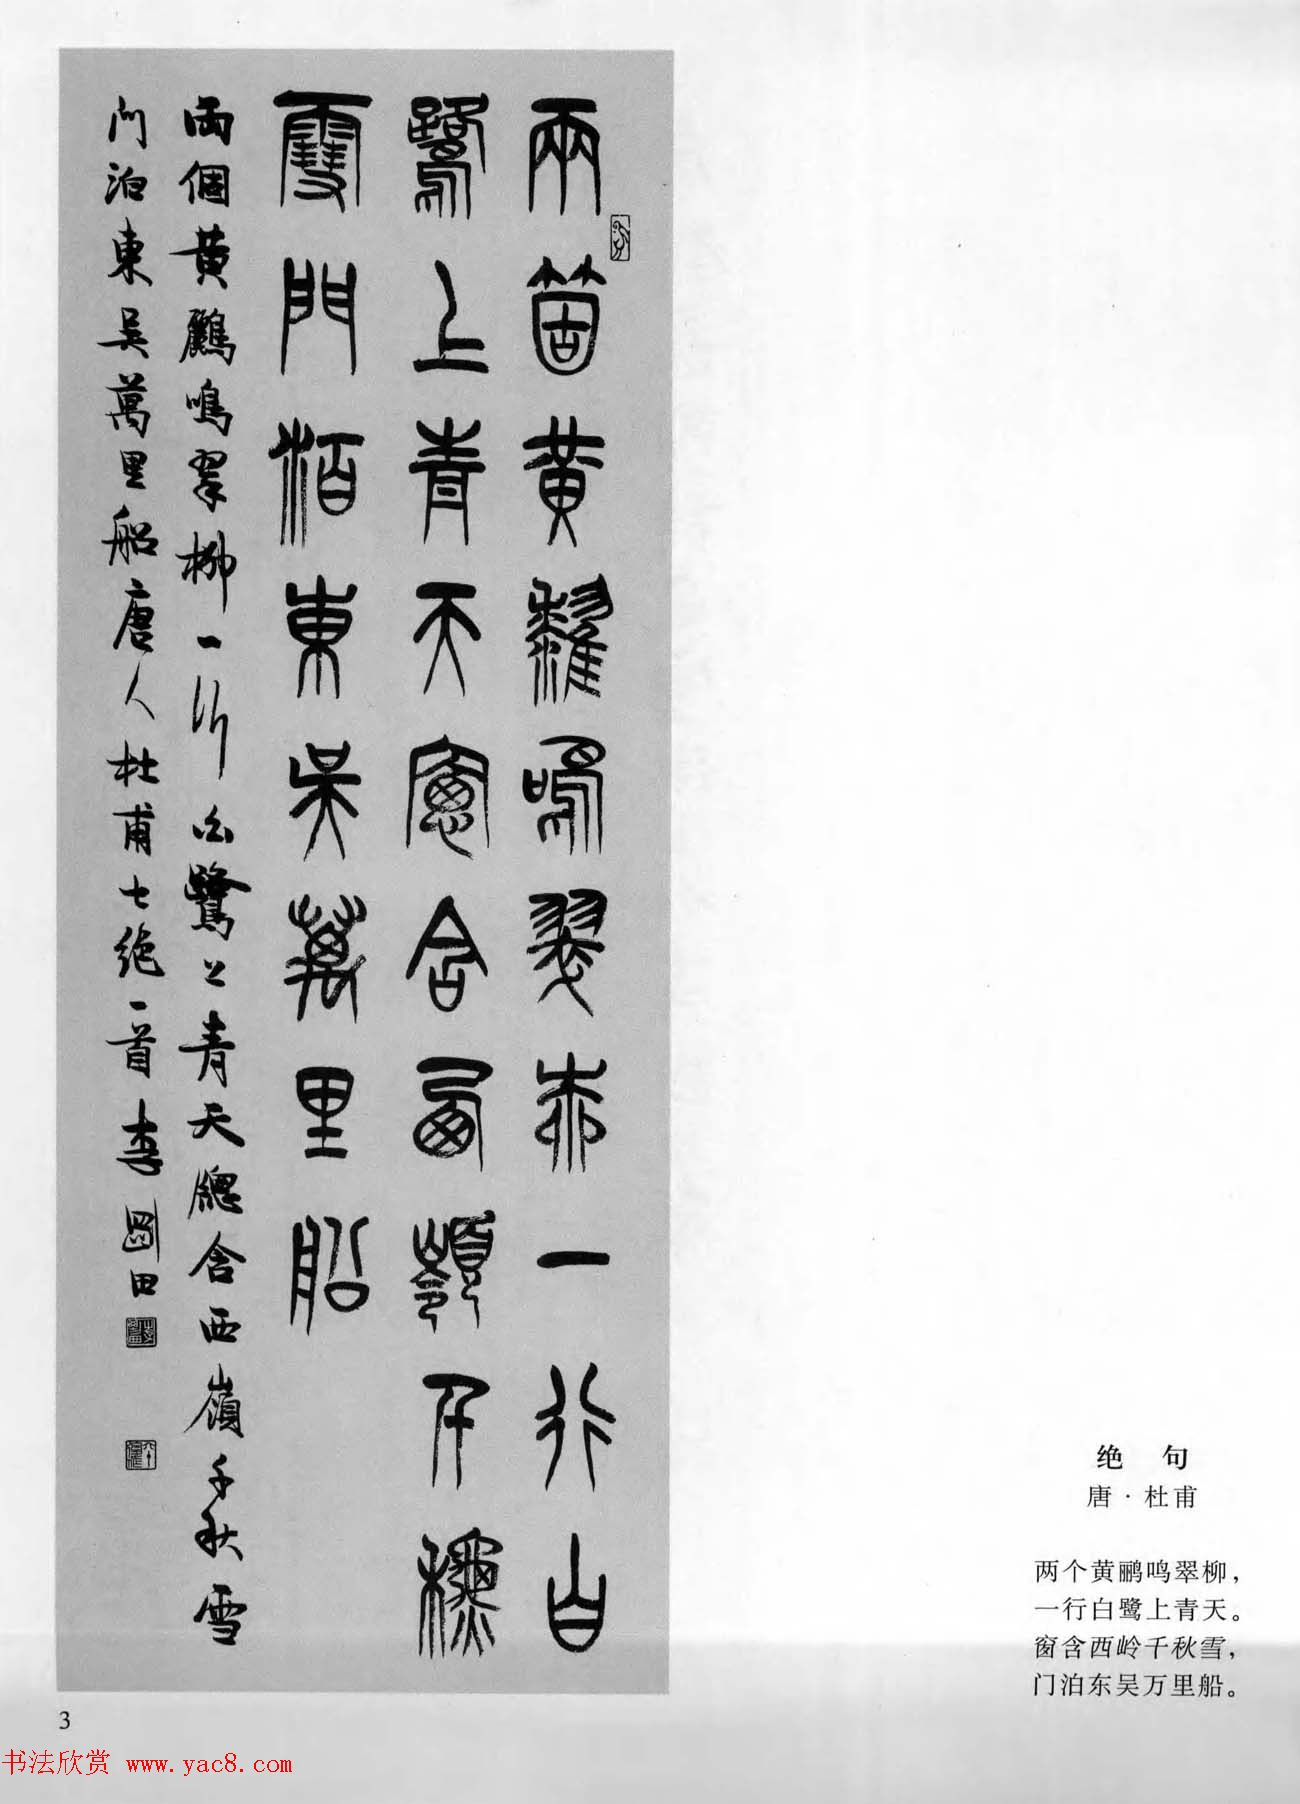 兩箇黃鸝鳴翠柳一行白
鷺上青天窻含西嶺千秋
雪門泊東吳萬里船
兩個黃鸝鳴翠柳一行白鷺上青天牕含西嶺千秋雪
門泊東吳萬里船唐人杜甫七絕一首李剛田
绝 句
唐·杜甫
两个黄鹂鸣翠柳，
一行白鹭上青天。
窗含西岭千秋雪，
门泊东吴万里船。
3
书法欣赏 www.yac8.com